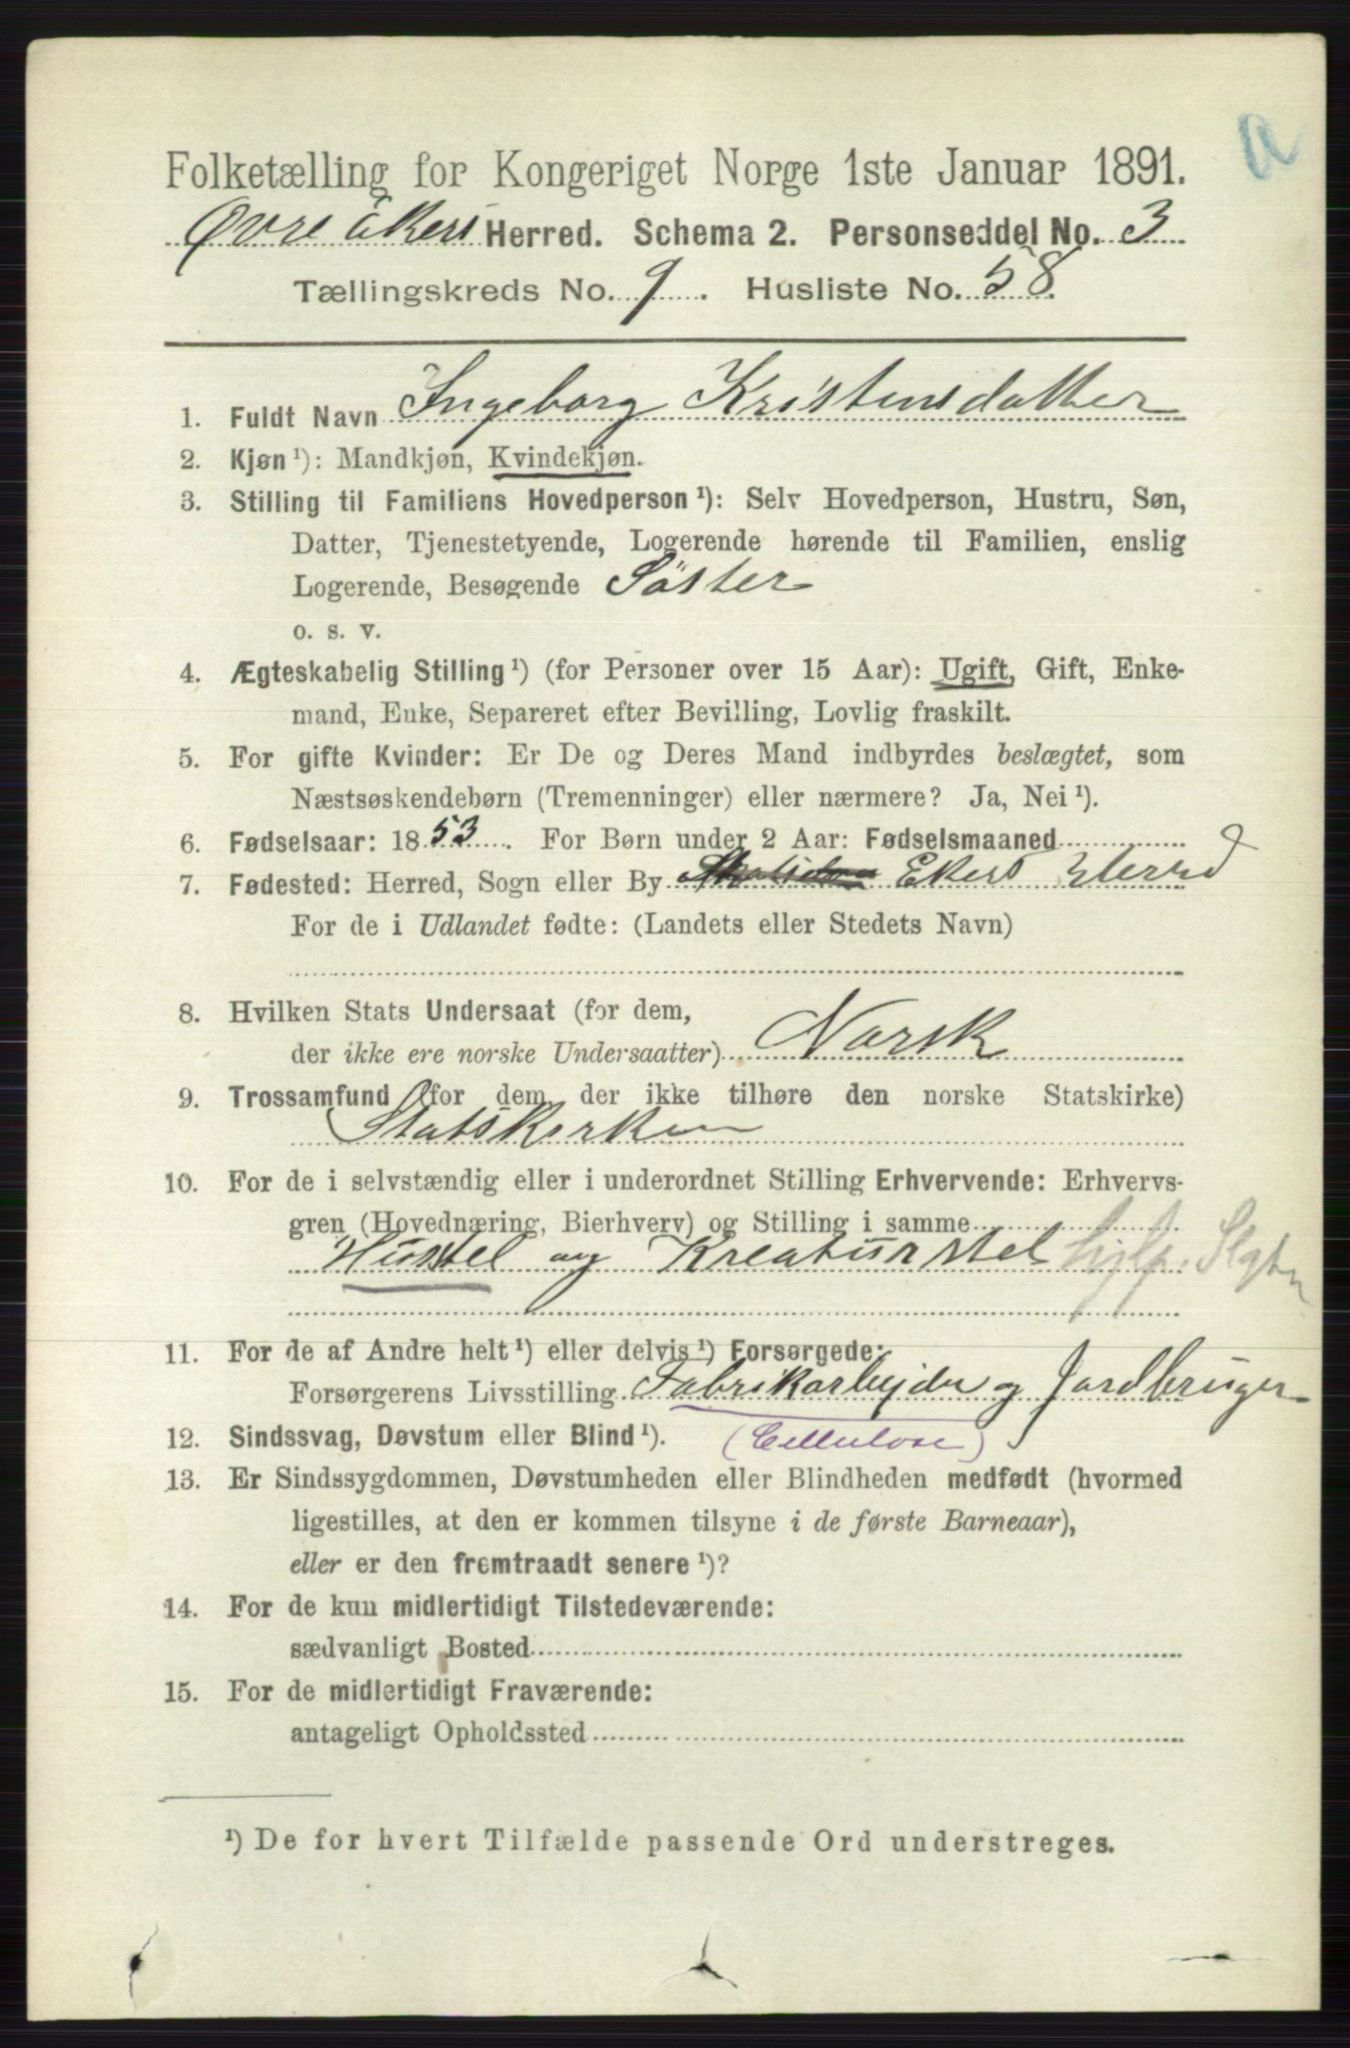 a
Folketælling for Kongeriget Norge 1ste Januar 1891.
Øvre Ekers Herred. Schema 2. Personseddel No. 3
Tællingskreds No. 9. Husliste No. 58.
1. Fuldt Navn Ingeborg Kristensdatter
2. Kjøn ¹): Mandkjøn, Kvindekjøn.
3. Stilling til Familiens Hovedperson ¹): Selv Hovedperson, Hustru, Søn,
Datter, Tjenestetyende, Logerende hørende til Familien, enslig
Logerende, Besøgende Søster
o. s. v.
4. Ægteskabelig Stilling ¹) (for Personer over 15 Aar): Ugift, Gift, Enke-
mand, Enke, Separeret efter Bevilling, Lovlig fraskilt.
5. For gifte Kvinder: Er De og Deres Mand indbyrdes beslægtet, som
Næstsøskendebørn (Tremenninger) eller nærmere? Ja, Nei ¹).
6. Fødselsaar: 1853. For Børn under 2 Aar: Fødselsmaaned
7. Fødested: Herred, Sogn eller By Ekers Herred
For de i Udlandet fødte: (Landets eller Stedets Navn)
8. Hvilken Stats Undersaat (for dem,
der ikke ere norske Undersaatter) Norsk
9. Trossamfund (for dem, der ikke tilhøre den norske Statskirke)
Statskirken
10. For de i selvstændig eller i underordnet Stilling Erhvervende: Erhvervs-
gren (Hovednæring, Bierhverv) og Stilling i samme
Husstel og Kreaturstel hjlp. Slgtn
11. For de af Andre helt ¹) eller delvis ¹) Forsørgede:
Forsørgerens Livsstilling Fabrikarbejder og Jordbruger
12. Sindssvag, Døvstum eller Blind ¹). (Cellulose)
13. Er Sindssygdommen, Døvstumheden eller Blindheden medfødt (hvormed
ligestilles, at den er kommen tilsyne i de første Barneaar),
eller er den fremtraadt senere ¹)?
14. For de kun midlertidigt Tilstedeværende:
sædvanligt Bosted
15. For de midlertidigt Fraværende:
antageligt Opholdssted
¹) De for hvert Tilfælde passende Ord understreges.